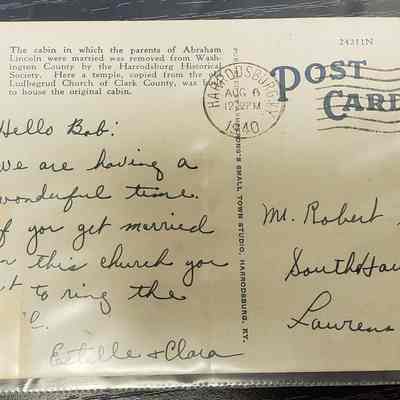 The cabin in which the parents of Abraham
Lincoln were married was removed from Wash-
ington County by the Harrodsburg Historical
Society. Here a temple, copied from the
Church of Clark County, was
to house the original cabin.
24211N
POST
CARD
HARRODSBURG, KY.
AUG 6
12 PM
1940
SMALL TOWN STUDIO, HARRODSBURG, KY.
Hello Bob:
We are having a
wonderful time.
If you get married
in this church you
to ring the
Estille & Clara
Mr. Robert
South
Laurens